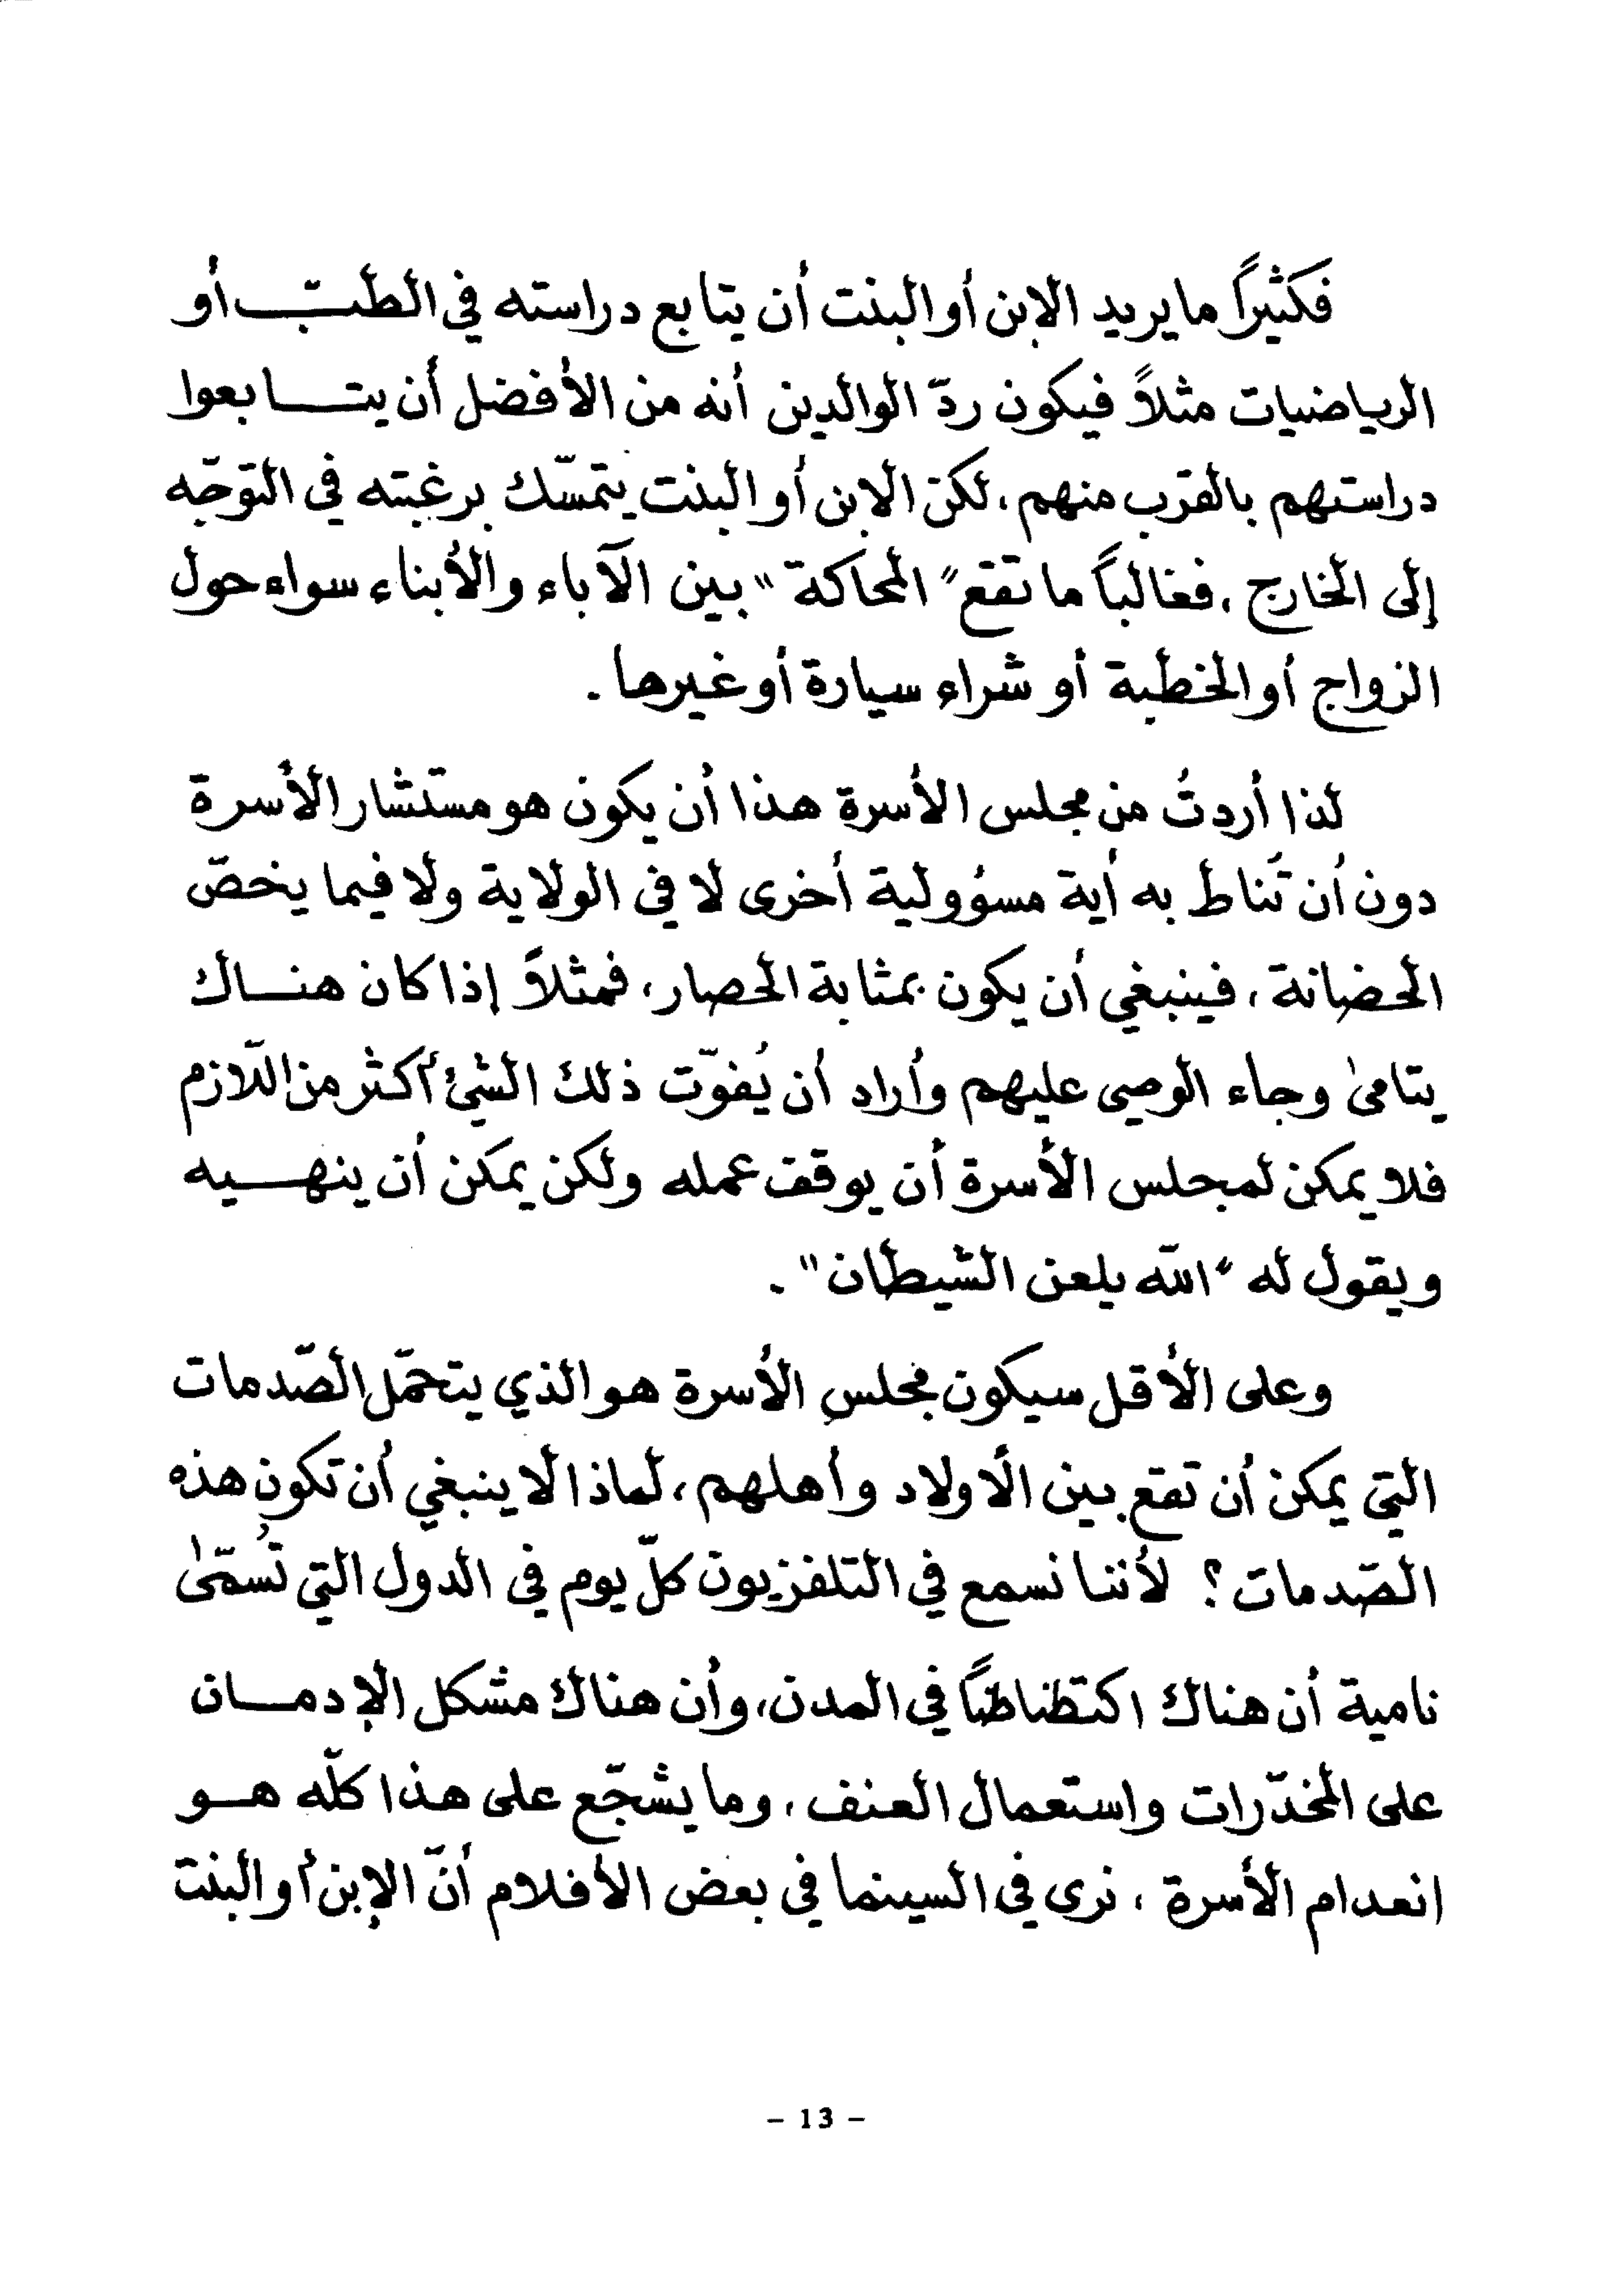 فكثيراً ما يريد الابن أو البنت أن يتابع دراسته في الطبّ أو
الرياضيات مثلاً فيكون ردّ الوالدين أنه من الأفضل أن يتابعوا
دراستهم بالقرب منهم، لكنّ الابن أو البنت يتمسّك برغبته في التوجّه
إلى الخارج، فغالباً ما تقع "المحاكة" بين الآباء والأبناء سواء حول
الزواج أو الخطبة أو شراء سيارة أو غيرها.
لذا أردتُ من مجلس الأسرة هذا أن يكون هو مستشار الأسرة
دون أن تُناط به أية مسؤولية أخرى لا في الولاية ولا فيما يخصّ
الحضانة، فينبغي أن يكون بمثابة الحصار، فمثلاً إذا كان هناك
يتامىٰ وجاء الوصي عليهم وأراد أن يُفوّت ذلك الشئ أكثر من اللّازم
فلا يمكن لمجلس الأسرة أن يوقف عمله ولكن يمكن أن ينهيه
ويقول له "اللّه يلعن الشيطان".
وعلى الأقل سيكون مجلسِ الأسرة هو الذي يتحمّل الصّدمات
التي يمكن أن تقع بين الأولاد وأهلهم، لماذا لا ينبغي أن تكون هذه
الصّدمات؟ لأننا نسمع في التلفزيون كلّ يوم في الدول التي تُسمّىٰ
نامية أن هناك اكتظاظاً في المدن، وأن هناك مشكل الإدمان
على المخدّرات واستعمال العنف، وما يشجّع على هذا كلّه هو
انعدام الأسرة، نرى في السينما في بعض الأفلام أنّ الإبن أو البنت
- 13 -